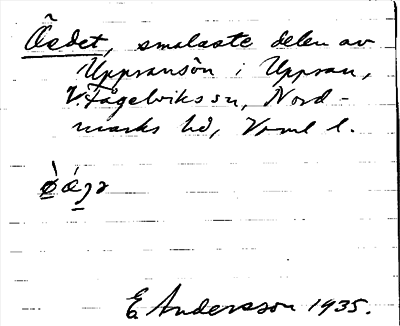 Öedet, smalaste delen av
Uppransön i Uppran,
V. Fågelviks sn, Nord-
marks hd, Vrml l.
E Andersson 1935.